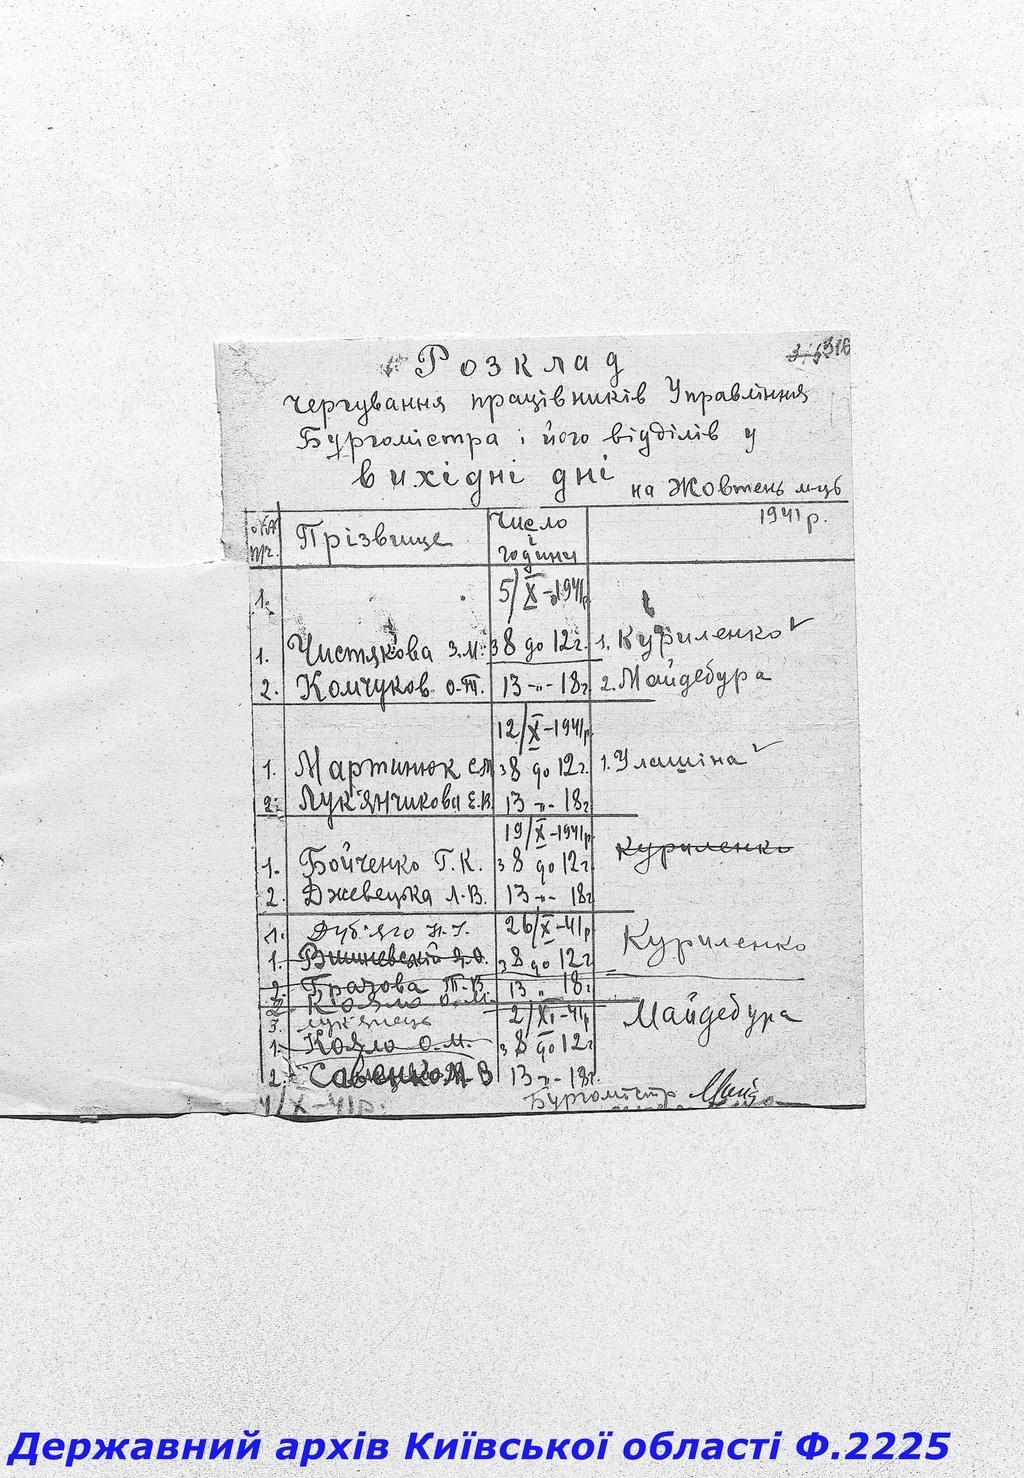 316
Розклад
чергування працівників Управління
Бургомістра і його відділів у
вихідні дні на Жовтень м-ць
1941 р.
Прізвище Число і години
1. 5/X-1941р.
1. Чистякова З.М. з 8 до 12 г. 1. Куриленко
2. Комчуков О.Т. 13 -"- 18 г. 2. Майдебура
12/X-1941р.
1. Мартинюк з 8 до 12 г. 1. Улашіна
2. Лук'янчикова Е.В. 13 -"- 18 г
19/X-1941р. Куриленко
1. Бойченко Г.К. з 8 до 12 г
2. Джевецька Л.В. 13 -"- 18 г
1. Дуб'яго 26/X-41р Куриленко
1. Вишневській з 8 до 12 г
2. Грахова Т.В. 13 " 18 г
2. Кояло О.М.
3. Лук'янець 2/XI-41р Майдебура
1. Кояло О.М. з 8 до 12 г
2. Савенко 13 -"- 18 г.
/X-41р. Бургомістр
Державний архів Київської області Ф.2225